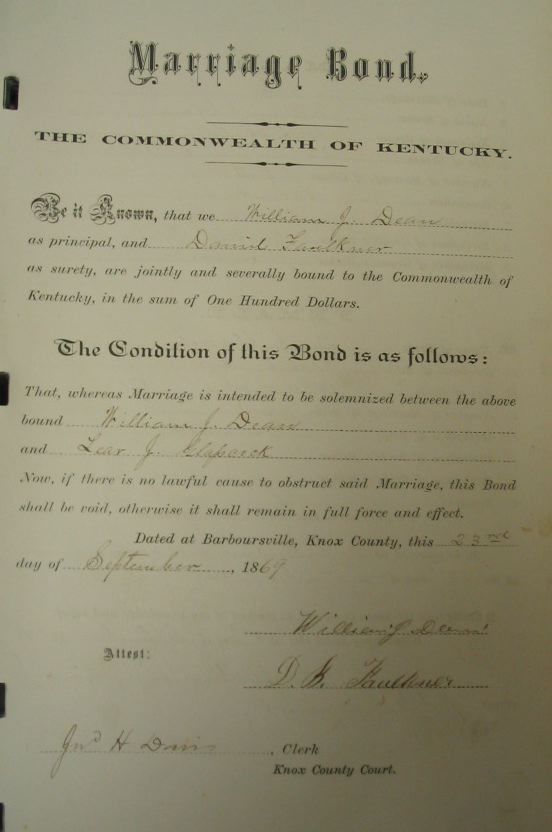 Marriage Bond.
THE COMMONWEALTH OF KENTUCKY.
Be it Known, that we William J. Dean
as principal, and David Faulkner
as surety, are jointly and severally bound to the Commonwealth of
Kentucky, in the sum of One Hundred Dollars.
The Condition of this Bond is as follows:
That, whereas Marriage is intended to be solemnized between the above
bound William J. Dean
and Lear J.
Now, if there is no lawful cause to obstruct said Marriage, this Bond
shall be void, otherwise it shall remain in full force and effect.
Dated at Barboursville, Knox County, this 23rd
day of September, 1869
William J Dean
Attest:
Faulkner
Jno H Davis, Clerk
Knox County Court.